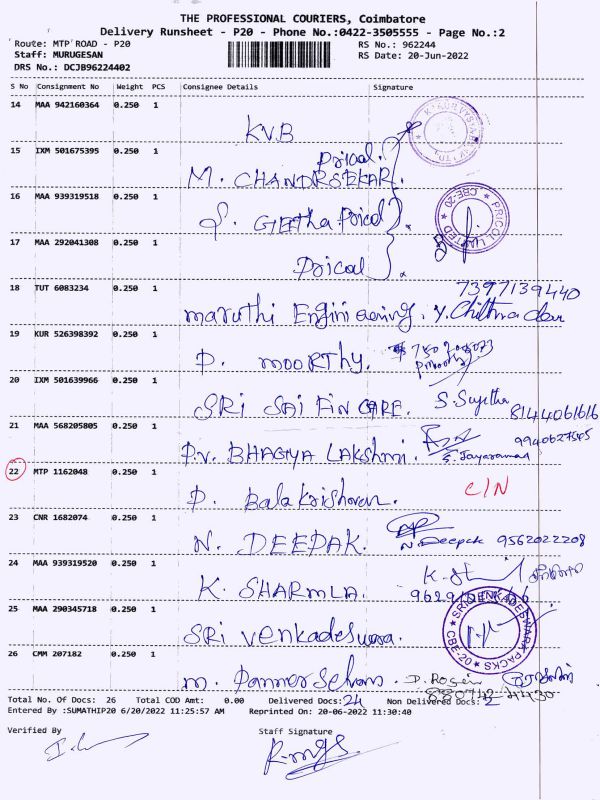 THE PROFESSIONAL COURIERS, Coimbatore
Delivery Runsheet - P20 - Phone No.:0422-3505555 - Page No.:2
Route: MTP ROAD - P20 RS No.: 962244
Staff: MURUGESAN RS Date: 20-Jun-2022
DRS No.: DCJB96224402
S No Consignment No Weight PCS Consignee Details Signature
14 MAA 942160364 0.250 1 K.V.B
15 IXM 501675395 0.250 1 Pricol.
M. CHANDRSEKAR.
16 MAA 939319518 0.250 1 S. GEETHA Pricol
PRICOL LIMITED CBE-20
17 MAA 292041308 0.250 1 Pricol
18 TUT 6083234 0.250 1 maruthi Engini eering. 7397139440
19 KUR 526398392 0.250 1 P. MOORTHY.
20 IXM 501639966 0.250 1 SRI SAI FIN CARE. S. Sujitha 8144061616
21 MAA 568205805 0.250 1 P.V. BHAGYA LAKSHMI. 9940627565
22 MTP 1162048 0.250 1 P. Balakrishnan. C/N
23 CNR 1682074 0.250 1 N. DEEPAK. N. Deepak 9562022208
24 MAA 939319520 0.250 1 K. SHARMLA.
25 MAA 290345718 0.250 1 SRI Venkadeswara.
SRI VENKADESWARA PACKS CBE-20
26 CMM 207182 0.250 1 m. Pannerselvam.
Total No. Of Docs: 26 Total COD Amt: 0.00 Delivered Docs: 24 Non Delivered Docs: 2
Entered By :SUMATHIP20 6/20/2022 11:25:57 AM Reprinted On: 20-06-2022 11:30:40
Verified By Staff Signature